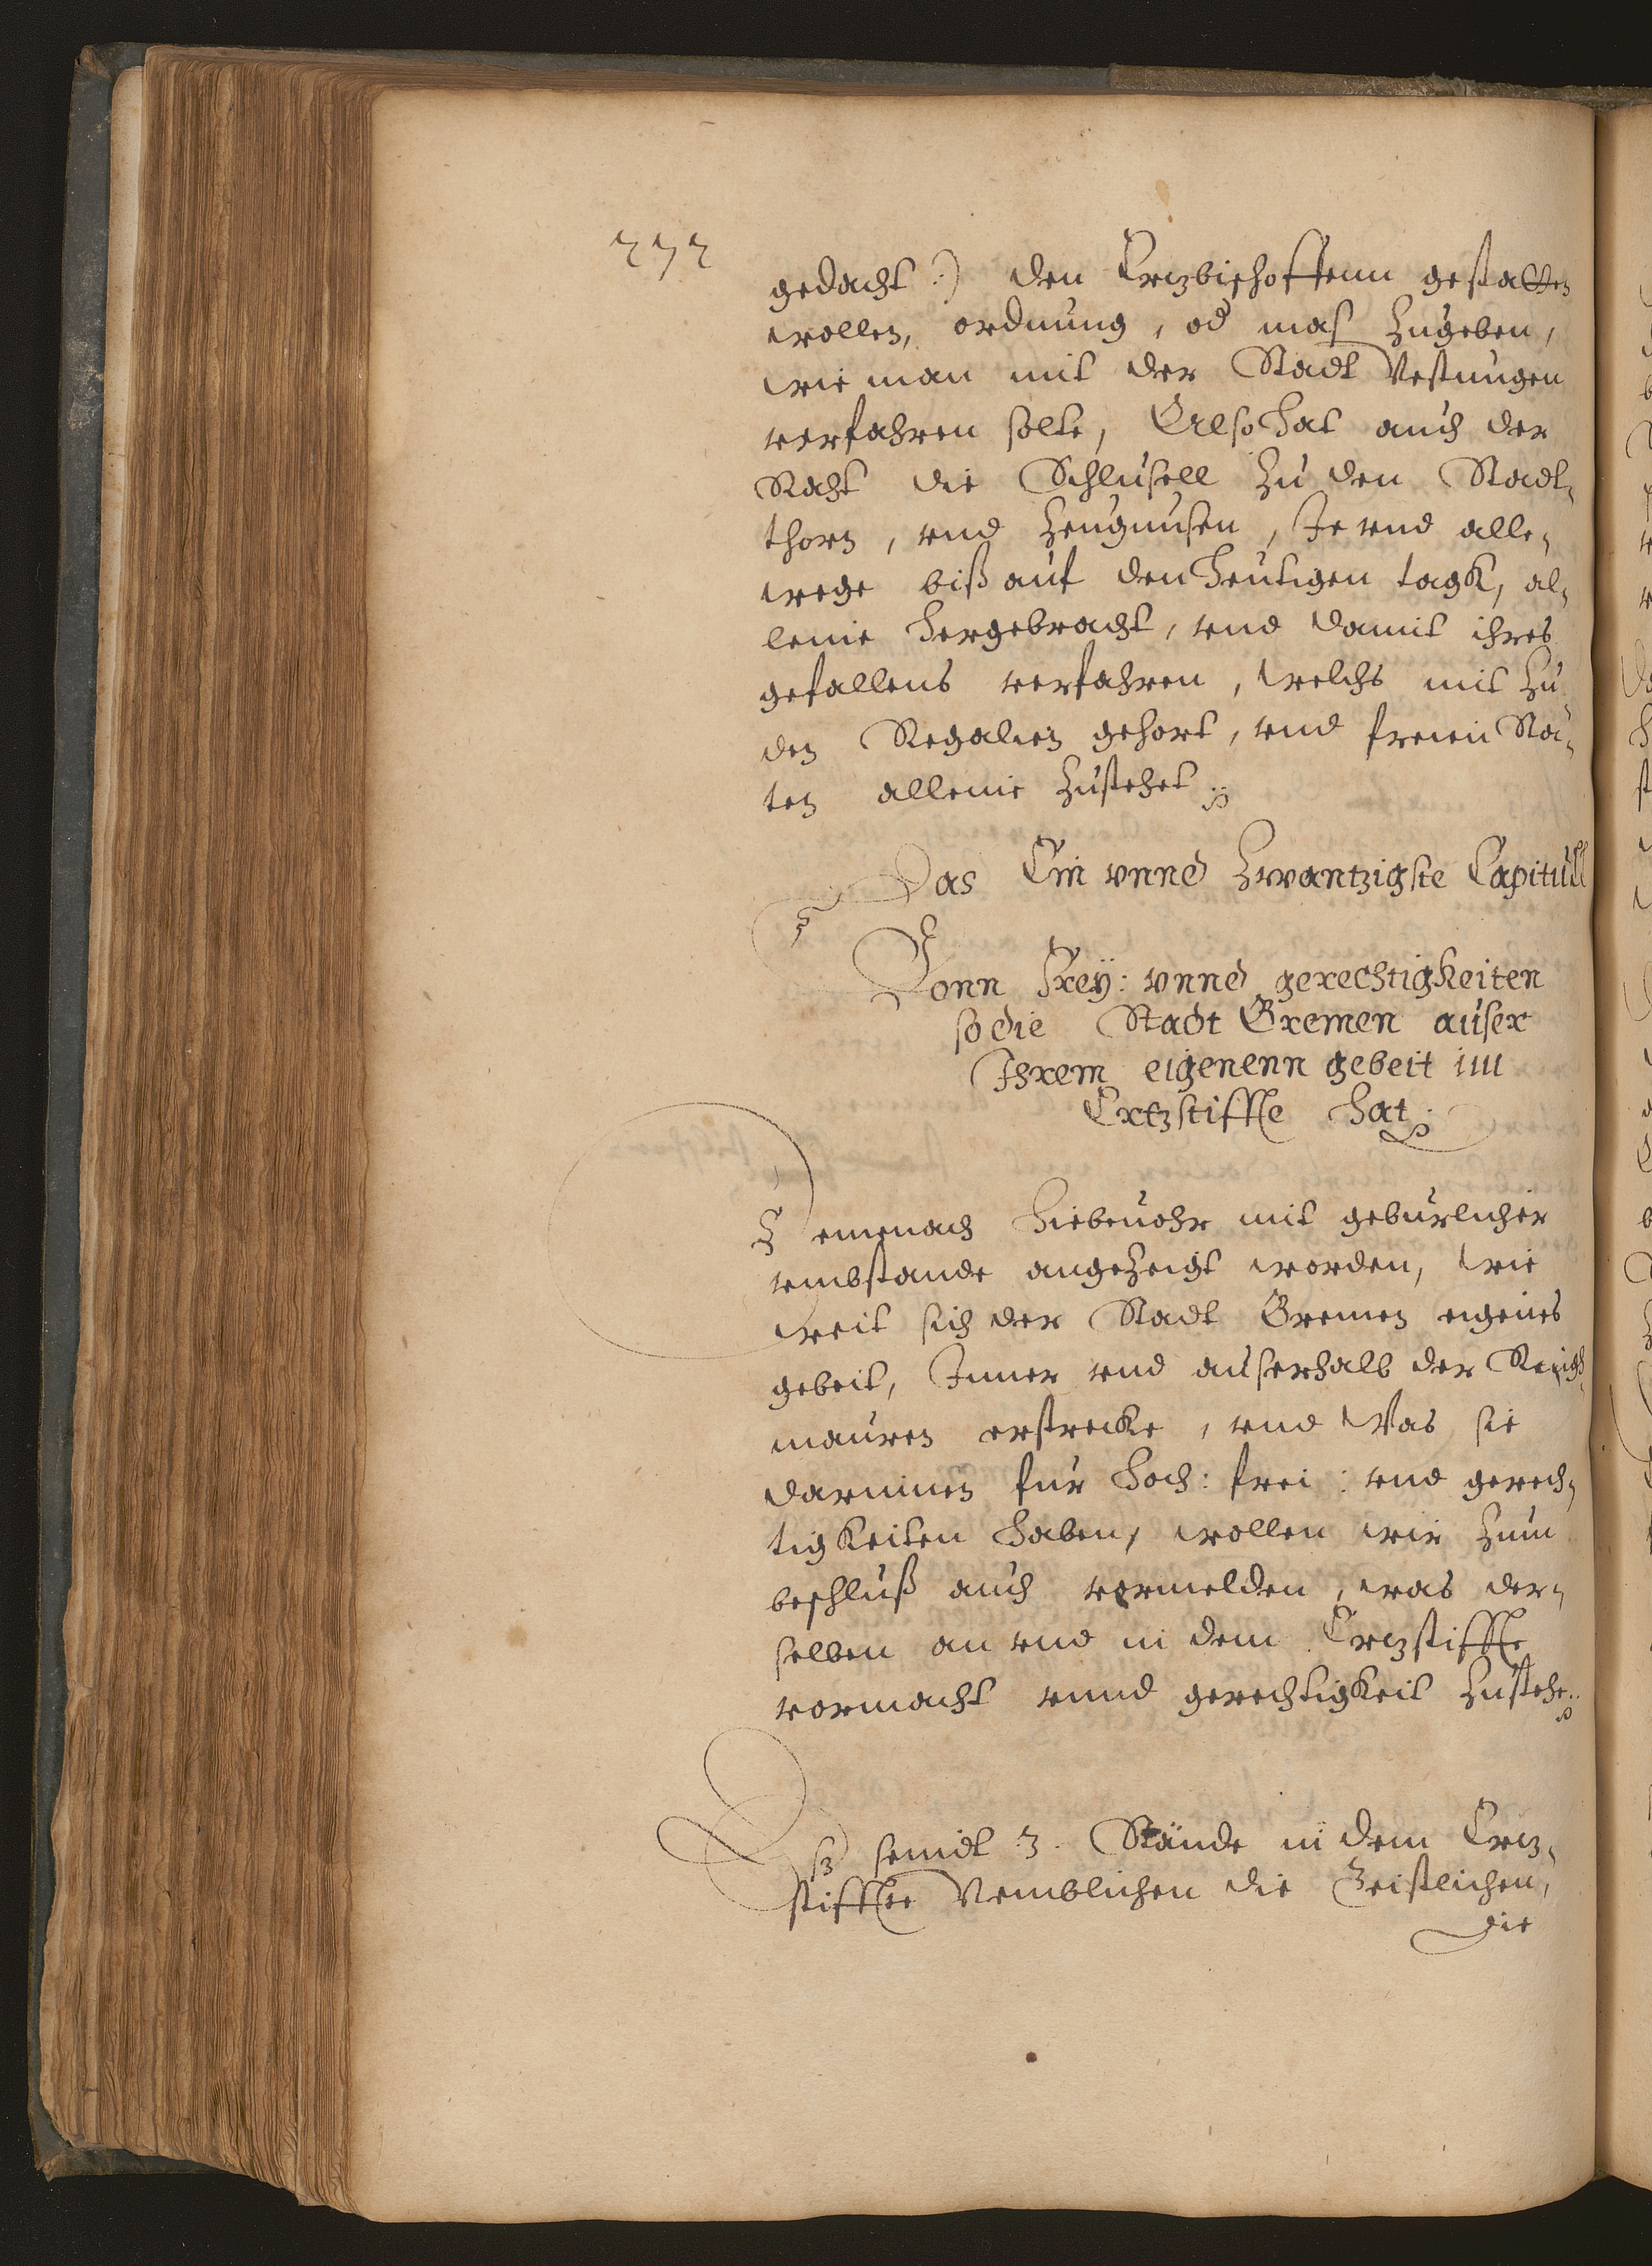 272
gedacht :) den Ertzbischoffenn gestatten
wollen, ordnung, od mas zugeben,
wie man mit der Stadt Vestungen
verfahren solte, Also hat auch der
Raht die Schlusell zu den Stadt-
thorn, vnd Zeugnusen, Je vnd alle-
wege biß auf den heutigen tagk, al-
leine hergebracht, vnd damit ihres
gefallens verfahren, welchs mit zu
den Regalien gehort, vnd freien Stä-
ten alleine zustehet.
Das Ein vnnd Zwantzigste Capitull
Vonn Frey: vnnd gerechtigkeiten
so die Stadt Bremen auser
Ihrem eigenenn gebeit im
Ertzstiffte hat.
Demenach hiebeuohr mit geburlicher
vmbstande angezeigt worden, wie
weit sich der Stadt Bremen eigenes
gebeit, Inner vnd auserhalb der Ringk-
mauren erstrecke, vnd Was sie
darinnen fur hoch: frei: vnd gerech-
tigkeiten haben, wollen wir zum
beschluß auch vormelden, was der-
selben an vnd in dem Ertzstiffte
vormacht vnnd gerechtigkeit zustehe.
Eß seindt 3. Stände in dem Ertz-
stiffte Nemblichen die Geistlichen,
die